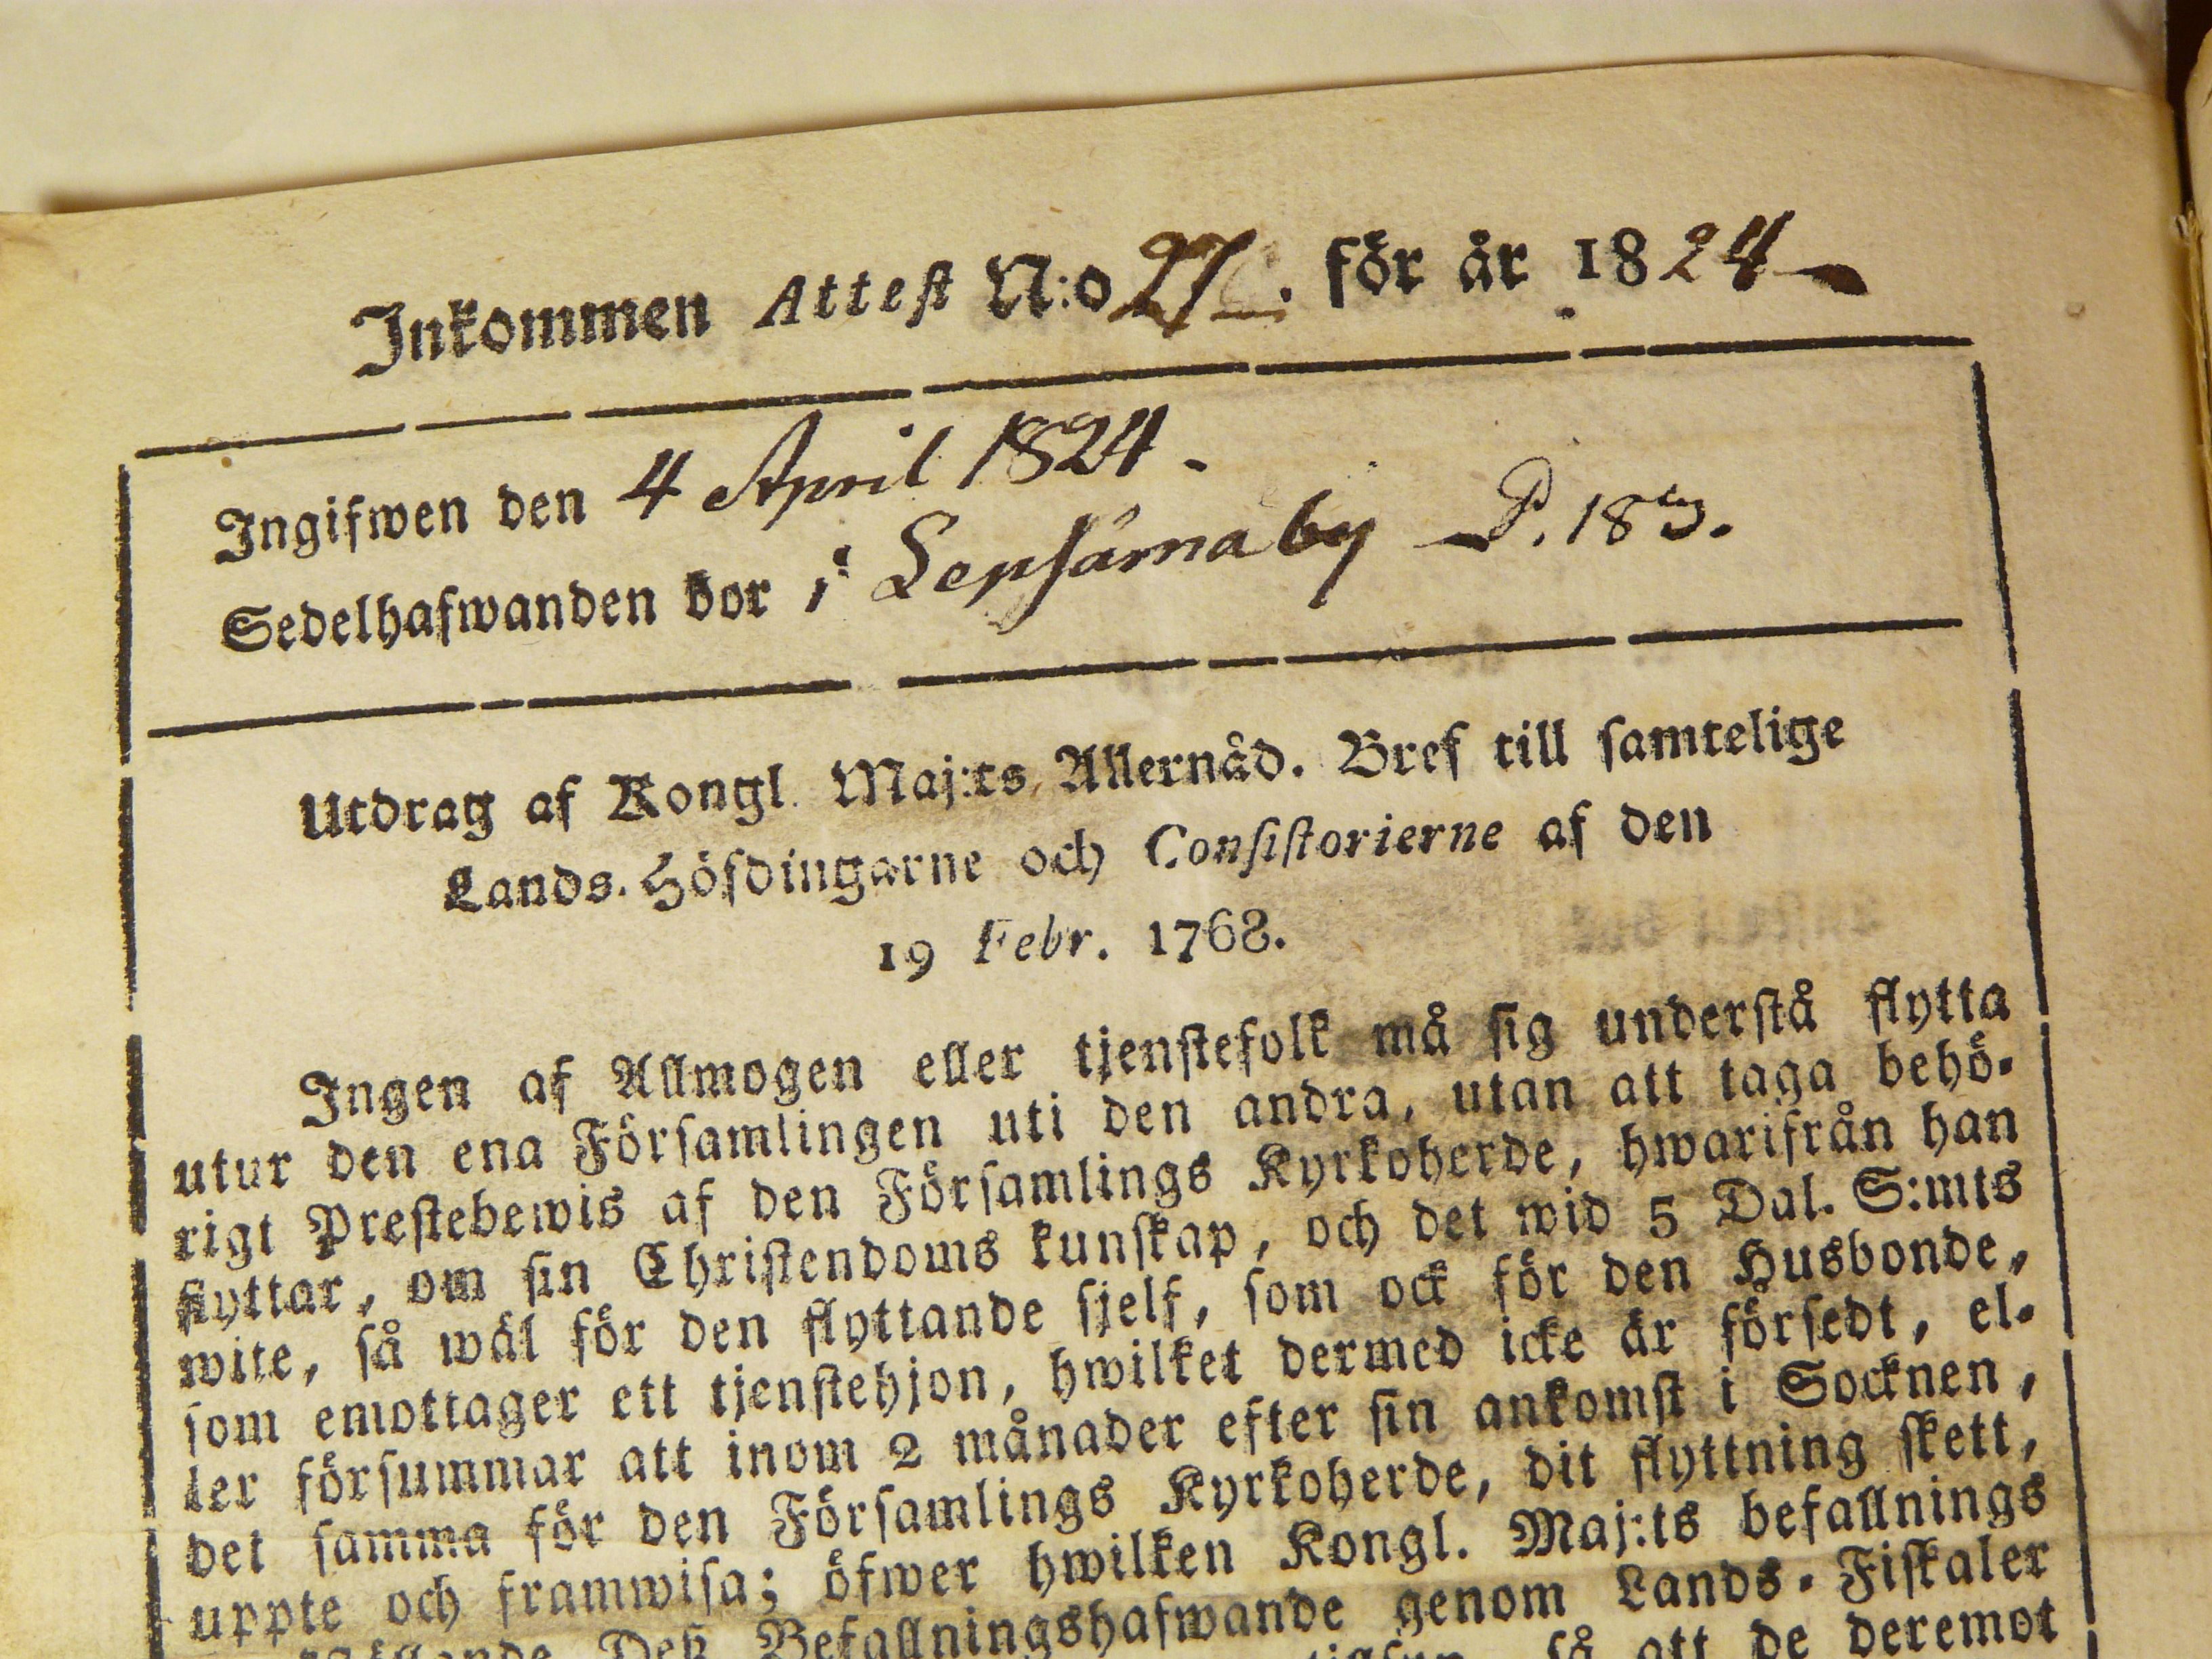 Inkommen Attest N:o 27. för år 1824
Ingifwen den 4 April 1824.
Sedelhafwanden bor i by P. 183.
Utdrag af Kongl. Maj:ts Allernåd. Bref till samtelige
Lands-Höfdingarne och Consistorierne af den
19 Febr. 1768.
Ingen af Allmogen eller tjenstefolk må sig understå flytta
utur den ena Församlingen uti den andra, utan att taga behö-
rigt Prestebewis af den Församlings Kyrkoherde, hwarifrån han
flyttar, om sin Christendoms kunskap, och det wid 5 Dal. S:mts
wite, så wäl för den flyttande sjelf, som ock för den Husbonde,
som emottager ett tjenstehjon, hwilket dermed icke är försedt, el-
ler försummar att inom 2 månader efter sin ankomst i Socknen,
det samma för den Församlings Kyrkoherde, dit flyttning skett,
uppte och framwisa; öfwer hwilken Kongl. Maj:ts befallnings
Deß Befallningshafwande genom Lands-Fiskaler
så att de deremot